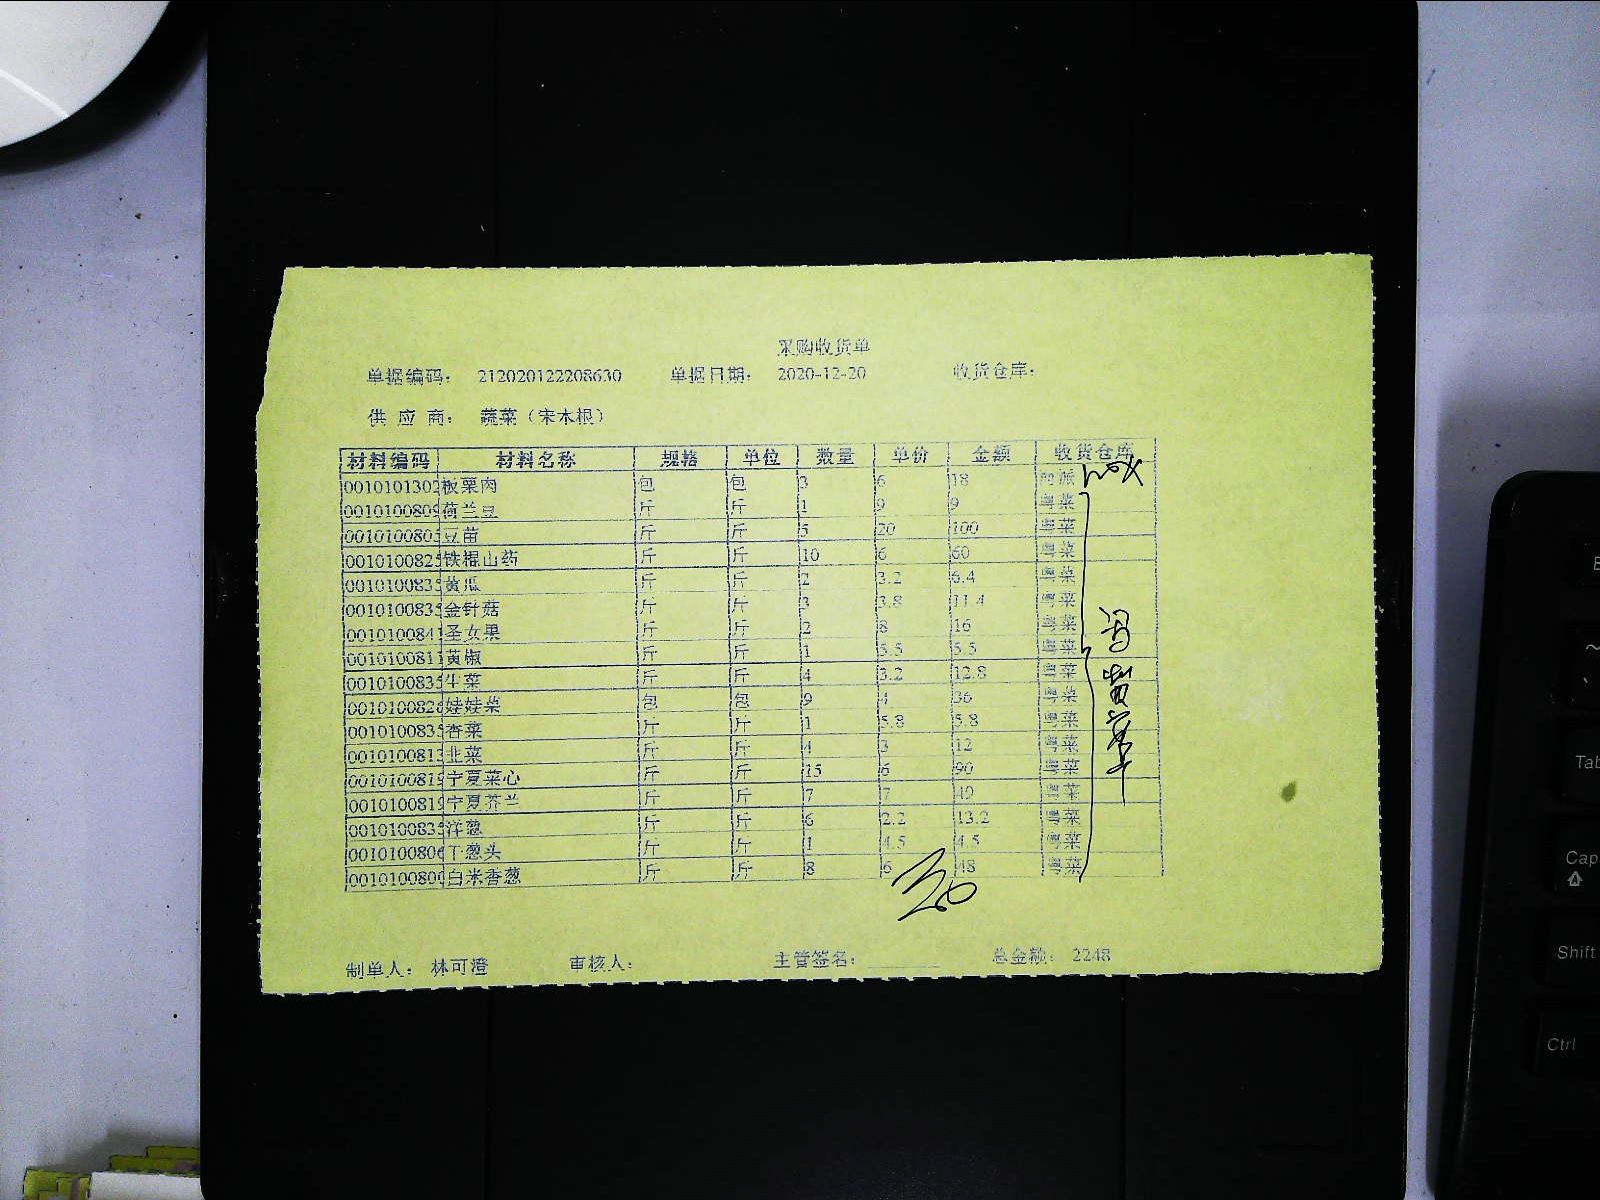 采购收货单
单据编码： 212020122208630 单据日期： 2020-12-20 收货仓库：
供 应 商： 蔬菜（宋本根）
材料编码 材料名称 规格 单位 数量 单价 金额 收货仓库
0010101302 板栗肉 包 包 3 6 18
001010080 荷兰豆 斤 斤 1 9 9 粤菜
001010080 豆苗 斤 斤 5 20 100 粤菜
001010082 铁棍山药 斤 斤 10 6 60 粤菜
001010083 黄瓜 斤 斤 2 3.2 6.4 粤菜
001010083 金针菇 斤 斤 3 3.8 11.4 粤菜
001010084 圣女果 斤 斤 2 8 16 粤菜
001010081 黄椒 斤 斤 1 5.5 5.5 粤菜
001010083 生菜 斤 斤 4 3.2 12.8 粤菜
001010082 娃娃菜 包 包 9 4 36 粤菜
001010083 香菜 斤 斤 1 5.8 5.8 粤菜
001010081 韭菜 斤 斤 4 3 12 粤菜
001010081 宁夏菜心 斤 斤 15 6 90 粤菜
001010081 宁夏芥兰 斤 斤 7 7 49 粤菜
001010083 洋葱 斤 斤 6 2.2 13.2 粤菜
001010080 干葱头 斤 斤 1 4.5 4.5 粤菜
001010080 白米香葱 斤 斤 8 6 48 粤菜
制单人： 林可澄 审核人： 主管签名： 总金额： 2248
Tab
Cap
Shift
Ctrl